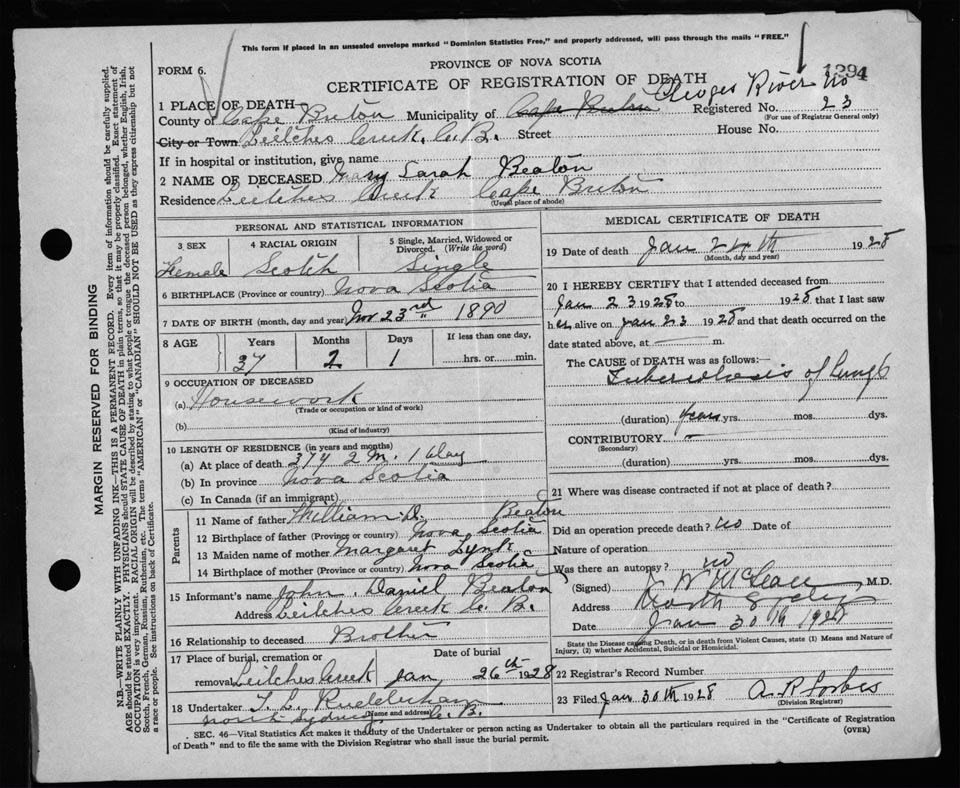 This form if placed in an unsealed envelope marked "Dominion Statistics Free," and properly addressed, will pass through the mails "FREE."
FORM 6.
PROVINCE OF NOVA SCOTIA
1394
CERTIFICATE OF REGISTRATION OF DEATH
1 PLACE OF DEATH—
County of Cape Breton Municipality of Cape Breton River No Registered No. 23
(For use of Registrar General only)
City or Town Leitches Creek, C. B. Street House No.
If in hospital or institution, give name
2 NAME OF DECEASED Mary Sarah Beaton
Residence Leitches Creek Cape Breton
(Usual place of abode)
PERSONAL AND STATISTICAL INFORMATION
3 SEX 4 RACIAL ORIGIN 5 Single, Married, Widowed or Divorced. (Write the word)
Female Scotch Single
6 BIRTHPLACE (Province or country) Nova Scotia
7 DATE OF BIRTH (month, day and year) Nov 23rd " 1890
8 AGE Years Months Days If less than one day,
37 2 1 hrs. or min.
9 OCCUPATION OF DECEASED
(a) Housework
(Trade or occupation or kind of work)
(b)
(Kind of industry)
10 LENGTH OF RESIDENCE (in years and months)
(a) At place of death 37 y 2 m. 1 day
(b) In province Nova Scotia
(c) In Canada (if an immigrant)
Parents
11 Name of father William D. Beaton
12 Birthplace of father (Province or country) Nova Scotia
13 Maiden name of mother Margaret
14 Birthplace of mother (Province or country) Nova Scotia
15 Informant's name John Daniel Beaton
Address Leitches Creek C. B.
16 Relationship to deceased Brother
17 Place of burial, cremation or removal Date of burial
Leitches Creek Jan 26th 1928
18 Undertaker T. L.
North Sydney C. B.
(Name and address)
MEDICAL CERTIFICATE OF DEATH
19 Date of death Jan 24th 1928
(Month, day and year)
20 I HEREBY CERTIFY that I attended deceased from
Jan 23 1928 to 1928 that I last saw
h er alive on Jan 23 1928 and that death occurred on the
date stated above, at m.
The CAUSE of DEATH was as follows:—
Tuberculosis of Lungs
(duration) years yrs. mos. dys.
CONTRIBUTORY
(Secondary)
(duration) yrs. mos. dys.
21 Where was disease contracted if not at place of death?
Did an operation precede death? no Date of
Nature of operation
Was there an autopsy? no
(Signed) McLean M.D.
Address North Sydney
Date Jan 30th 1928
State the Disease causing Death, or in death from Violent Causes, state (1) Means and Nature of Injury, (2) whether Accidental, Suicidal or Homicidal.
22 Registrar's Record Number
23 Filed Jan 30th 1928 A. R. Forbes
(Division Registrar)
SEC. 46—Vital Statistics Act makes it the duty of the Undertaker or person acting as Undertaker to obtain all the particulars required in the "Certificate of Registration
of Death" and to file the same with the Division Registrar who shall issue the burial permit.
(OVER)
MARGIN RESERVED FOR BINDING
N.B.—WRITE PLAINLY WITH UNFADING INK—THIS IS A PERMANENT RECORD. Every item of information should be carefully supplied.
AGE should be stated EXACTLY. PHYSICIANS should STATE CAUSE OF DEATH in plain terms, so that it may be properly classified. Exact statement of
OCCUPATION is very important. RACIAL ORIGIN will be described by stating to what people or tongue the deceased person belonged, whether English, Irish,
Scotch, French, German, Russian, Ruthenian, etc. The terms "AMERICAN" or "CANADIAN" SHOULD NOT BE USED as they express citizenship but not
a race or people. See instructions on back of Certificate.